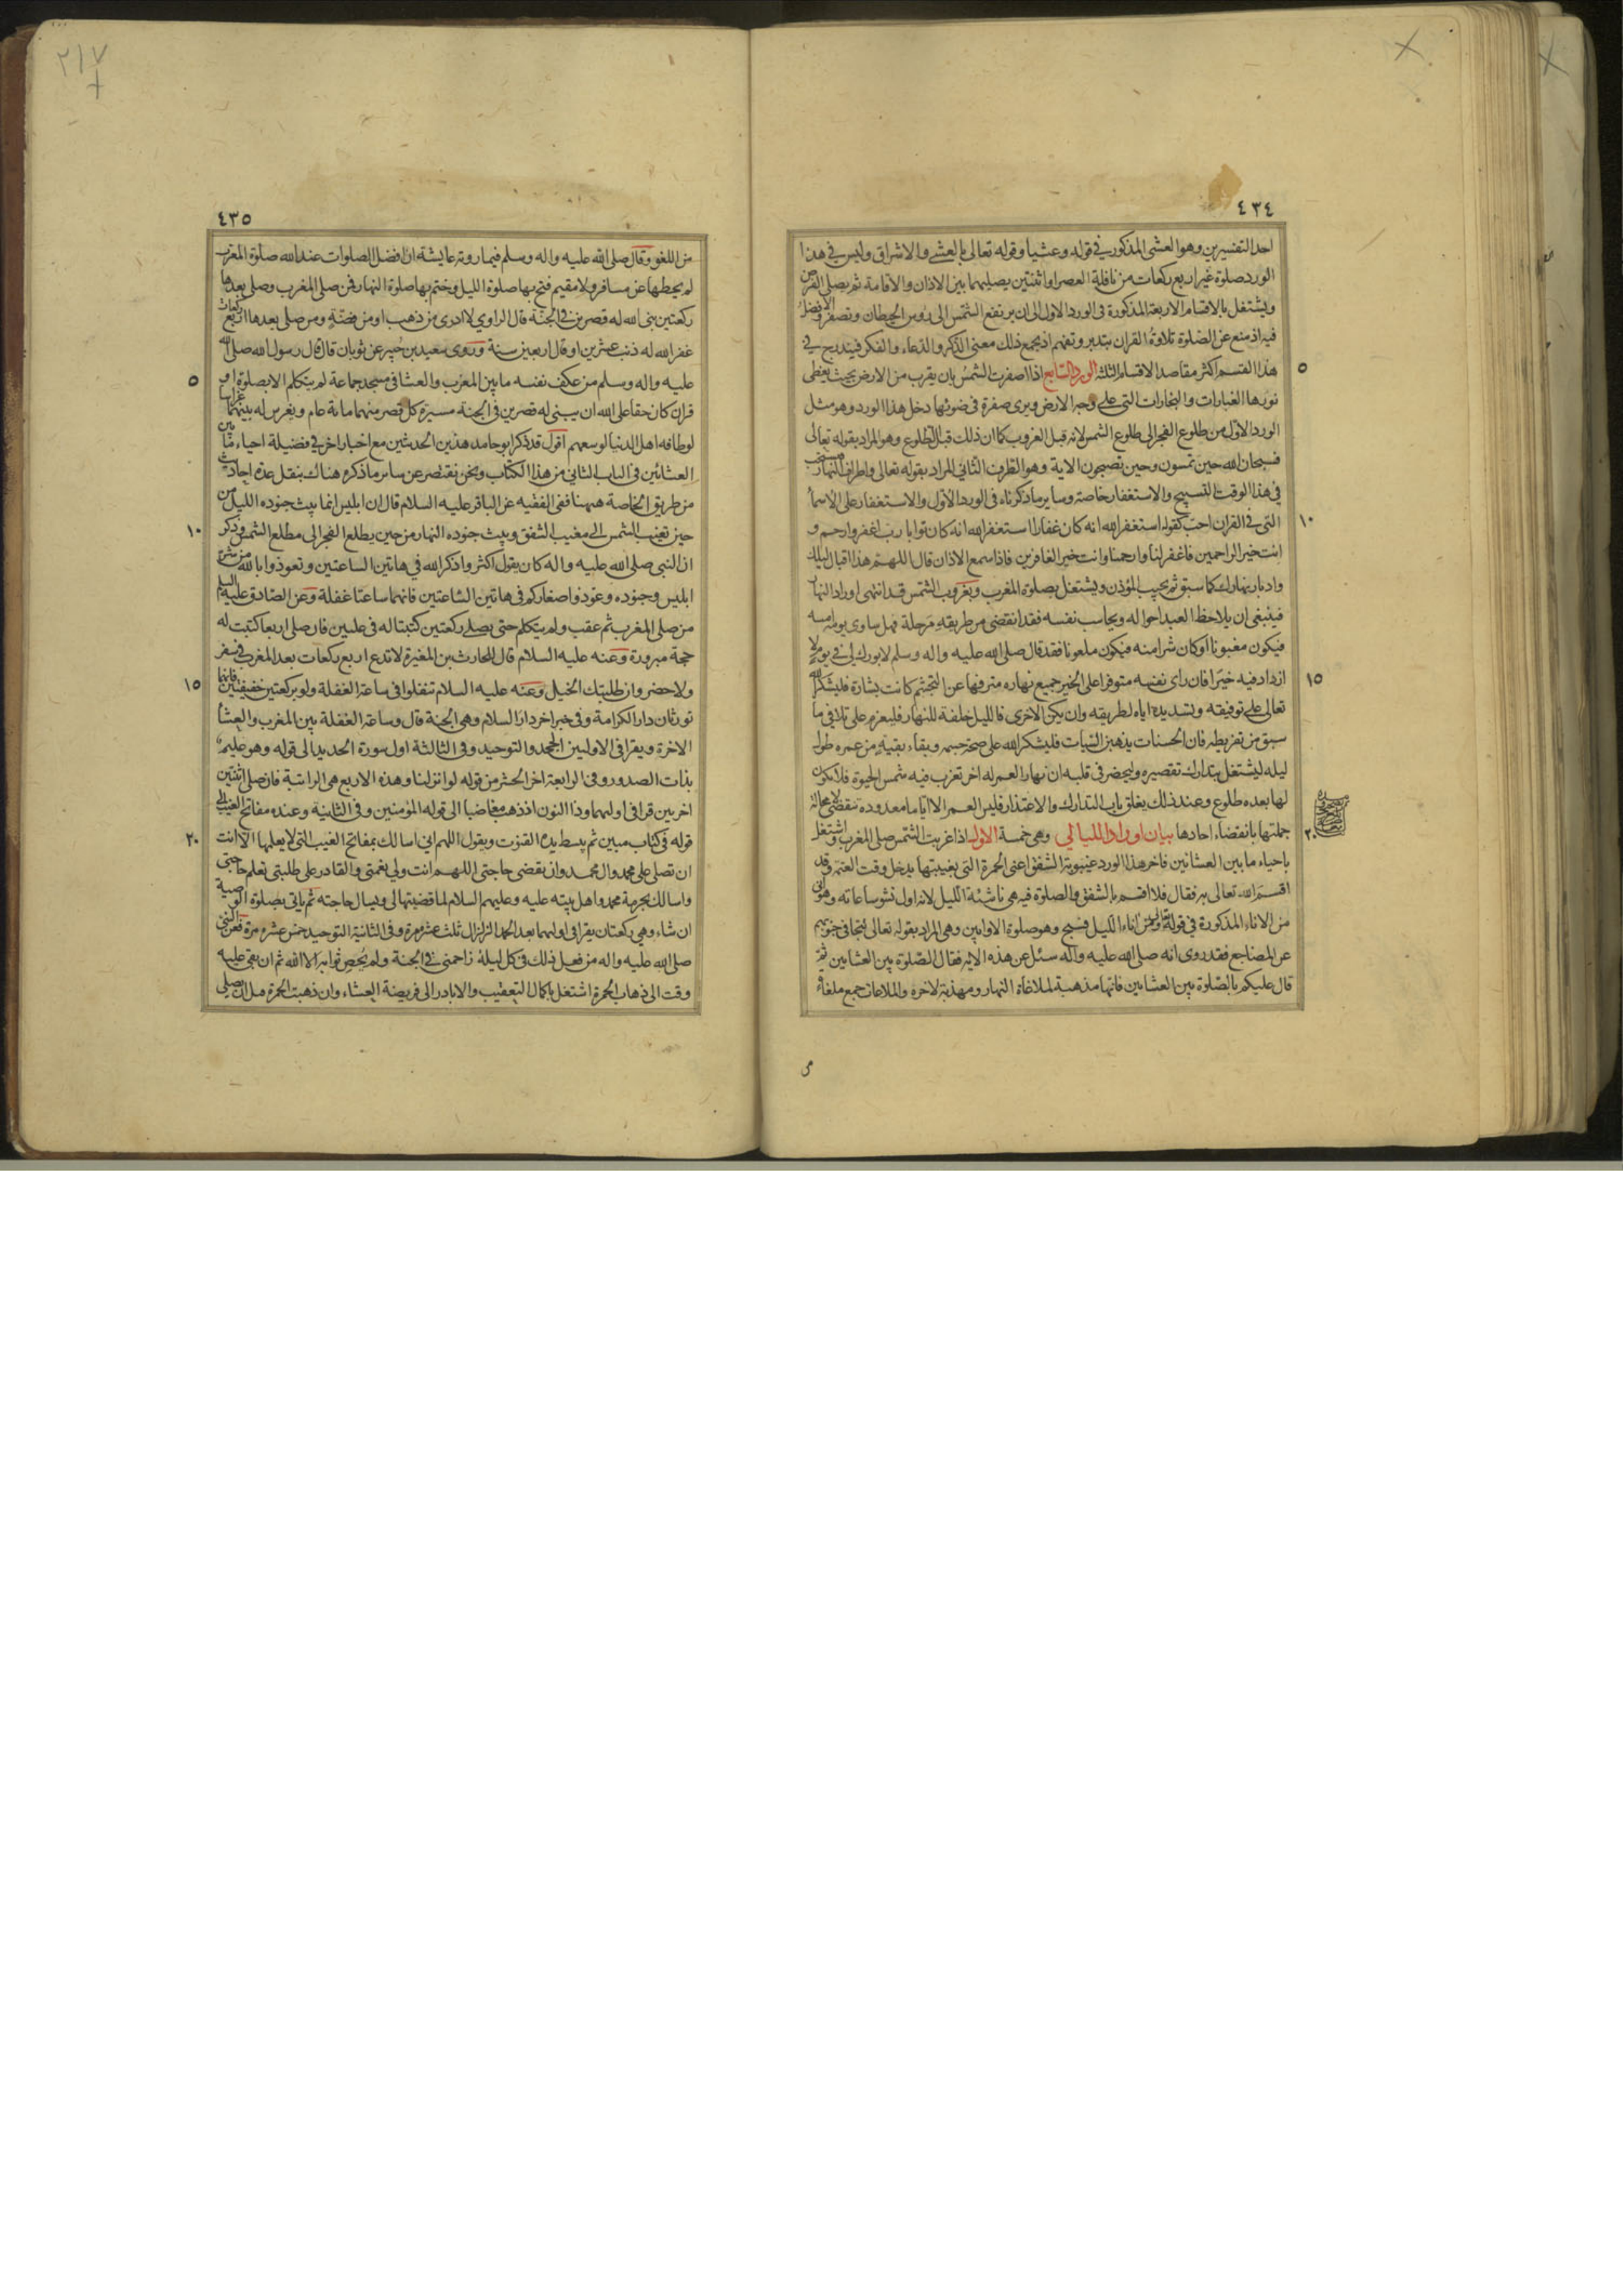 ٤٣٤
احد التفسيرين وهو العشى المذكور فى قوله وعشيا وقوله تعالى بالعشى والاشراق وليس فى هذا
الورد صلوة غير اربع ركعات من نافلة العصر او اثنتين يصليهما بين الاذان والاقامة ثم يصلى الفرض
ويشتغل بالاقسام الاربعة المذكورة فى الورد الاول الى ان يرتفع الشمس الى رؤس الحيطان وتصفر والافضل
فيه اذ منع عن الصلوة تلاوة القران بتدبر وتفهم اذ يجمع ذلك معنى الذكر والدعاء والفكر فيندرج فى
٥
هذا القسم اكثر مقاصد الاقسام الثلثة الورد السابع اذا اصفرت الشمس بان يقرب من الارض بحيث يغطى
نورها الغبارات والبخارات التى على وجه الارض ويرى صفرة فى ضوئها دخل هذا الورد وهو مثل
الورد الاول من طلوع الفجر الى طلوع الشمس لانه قبل الغروب كما ان ذلك قبل الطلوع وهو المراد بقوله تعالى
فسبحان الله حين تمسون وحين تصبحون الاية وهو الطرف الثانى المراد بقوله تعالى واطراف النهار
فى هذا الوقت التسبيح والاستغفار خاصة وساير ما ذكرناه فى الورد الاول والاستغفار على الاسماء
١٠
التى فى القران احب كقوله استغفر الله انه كان غفارا استغفر الله انه كان توابا رب اغفر وارحم و
انت خير الراحمين فاغفر لنا وارحمنا وانت خير الغافرين فاذا سمع الاذان قال اللهم هذا اقبال ليلك
وادبار نهارك كما سبق ثم يجيب المؤذن ويشتغل بصلوة المغرب وبغروب الشمس قد انتهى اوراد النهار
فينبغى ان يلاحظ العبد احواله ويحاسب نفسه فقد انقضى من طريقه مرحلة فهل ساوى يومه امسه
فيكون مغبونا او كان شرا منه فيكون ملعونا فقد قال صلى الله عليه واله وسلم لا بورك لى فى يوم لا
١٥
ازداد فيه خيرا فان راى نفسه متوفرا على الخير جميع نهاره مترفها عن التجشم كانت بشارة فليشكر الله
تعالى على توفيقه وتسديده اياه لطريقه وان يكن الاخرى فالليل خلفة للنهار فليعزم على تلافى ما
سبق من تفريطه فان الحسنات يذهبن السيات فليشكر الله على صحة جسمه وبقاء بقية من عمره طول
ليله ليشتغل بتدارك تقصيره وليحضر فى قلبه ان نهار العمر له اخر تغرب فيه شمس الحيوة فلا يكون
لها بعده طلوع وعند ذلك يغلق باب التدارك والاعتذار فليس العمر الا اياما معدودة تنقضى لا محالة
٢٠
جملتها بانقضاء احادها بيان اوراد الليالى وهى خمسة الاول اذا غربت الشمس صلى المغرب واشتغل
باحياء ما بين العشائين فاخر هذا الورد غيبوبة الشفق اعنى الحمرة التى بغيبتها يدخل وقت العتمة وقد
اقسم الله تعالى به فقال فلا اقسم بالشفق والصلوة فيه هى ناشئة الليل لانه اول نشو ساعاته وهو ان
من الاناء المذكورة فى قوله تعالى ومن اناء الليل فسبح وهو صلوة الاوابين وهى المراد بقوله تعالى تتجافى جنوبهم
عن المضاجع فقد روى انه صلى الله عليه واله سئل عن هذه الاية فقال الصلوة بين العشاءين ثم
قال عليكم بالصلوة بين العشاءين فانها مذهبة لملاغاة النهار ومهذبة لاخره والملاغات جمع ملغاة
من
٢١٧
٤٣٥
من اللغو وقال صلى الله عليه واله وسلم فيما روته عايشة ان افضل الصلوات عند الله صلوة المغرب
لم يحطها عن مسافر ولا مقيم فتح بها صلوة الليل وختم بها صلوة النهار فمن صلى المغرب وصلى بعدها
ركعتين بنى الله له قصرين فى الجنة قال الراوى لا ادرى من ذهب او من فضة ومن صلى بعدها اربع ركعات
غفر الله له ذنب عشرين او قال اربعين سنة وروى سعيد بن جبير عن ثوبان قال قال رسول الله صلى الله
٥
عليه واله وسلم من عكف نفسه ما بين المغرب والعشا فى مسجد جماعة لم يتكلم الا بصلوة او
قران كان حقا على الله ان يبنى له قصرين فى الجنة مسيرة كل قصر منهما مائة عام ويغرس له بينهما غراسا
لو طافه اهل الدنيا لوسعهم اقول قد ذكر ابو حامد هذين الحديثين مع اخبار اخر فى فضيلة احياء ما بين
العشائين فى الباب الثانى من هذا الكتاب ونحن نقتصر عن ساير ما ذكره هناك بنقل عدة احاديث
من طريق الخاصة ههنا ففى الفقيه عن الباقر عليه السلام قال ان ابليس انما يبث جنوده الليل من
١٠
حين تغيب الشمس الى مغيب الشفق ويبث جنوده النهار من حين يطلع الفجر الى مطلع الشمس وذكر
ان النبى صلى الله عليه واله كان يقول اكثروا ذكر الله فى هاتين الساعتين وتعوذوا بالله من شر
ابليس وجنوده وعوذوا صغاركم فى هاتين الساعتين فانهما ساعتا غفلة وعن الصادق عليه السلم
من صلى المغرب ثم عقب ولم يتكلم حتى يصلى ركعتين كتبتا له فى عليين فان صلى اربعا كتبت له
حجة مبرورة وعنه عليه السلام قال للحارث بن المغيرة لا تدع اربع ركعات بعد المغرب فى سفر
١٥
ولا حضر وان طلبتك الخيل وعنه عليه السلام تنفلوا فى ساعة الغفلة ولو بركعتين خفيفتين فانهما
تورثان دار الكرامة وفى خبر اخر دار السلام وهى الجنة قال وساعة الغفلة بين المغرب والعشا
الاخرة ويقرا فى الاوليين الجحد والتوحيد وفى الثالثة اول سورة الحديد الى قوله وهو عليم
بذات الصدور وفى الرابعة اخر الحشر من قوله لو انزلنا وهذه الاربع هى الراتبة فان صلى اثنتين
اخريين قرا فى اولهما وذا النون اذ ذهب مغاضبا الى قوله المؤمنين وفى الثانية وعنده مفاتح الغيب الى
٢٠
قوله فى كتاب مبين ثم يبسط يده القنوت ويقول اللهم انى اسالك بمفاتح الغيب التى لا يعلمها الا انت
ان تصلى على محمد وال محمد وان تقضى حاجتى اللهم انت ولى نعمتى والقادر على طلبتى تعلم حاجتى
واسالك بحرمة محمد واهل بيته عليه وعليهم السلام لما قضيتها لى ويسال حاجته ثم ياتى بصلوة الوصية
ان شاء وهى ركعتان يقرا فى اوليهما بعد الحمد الزلزال ثلث عشرة مرة وفى الثانية التوحيد خمس عشرة مرة فعن النبى
صلى الله عليه واله من فعل ذلك فى كل ليلة زاحمنى فى الجنة ولم يحص ثوابه الا الله ثم ان بقى عليه
وقت الى ذهاب الحمرة اشتغل باكمال التعقيب والا بادر الى فريضة العشاء وان ذهبت الحمرة قبل ان يصلى